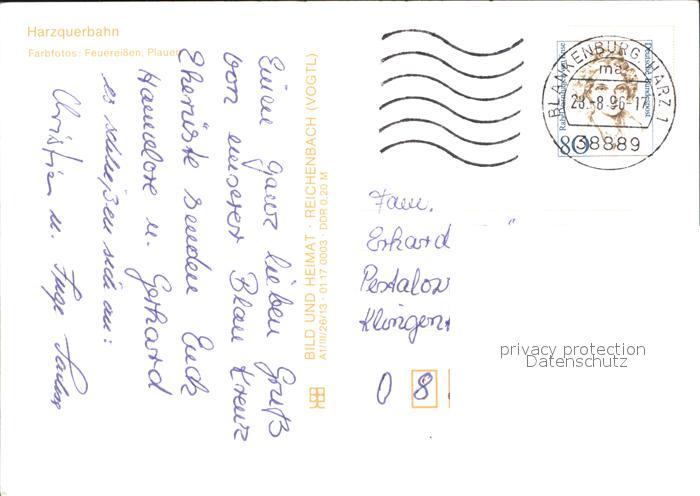 Harzquerbahn
Farbfotos: Feuereißen, Plauen
Einen ganz lieben Gruß
von unserer Blau Kreuz
Ehe rüste senden Euch
Hannelore u. Gerhard
es schließen sich an:
Christian u. Inge
BILD UND HEIMAT · REICHENBACH (VOGTL)
A1/III/26/13 · 01 17 0003 · DDR 0,20 M
BLANKENBURG, HARZ 1
ma
28.-8.96-17
38889
Deutsche Bundespost
80
Fam.
Erhard
Pestaloz
Klingent
08
privacy protection
Datenschutz